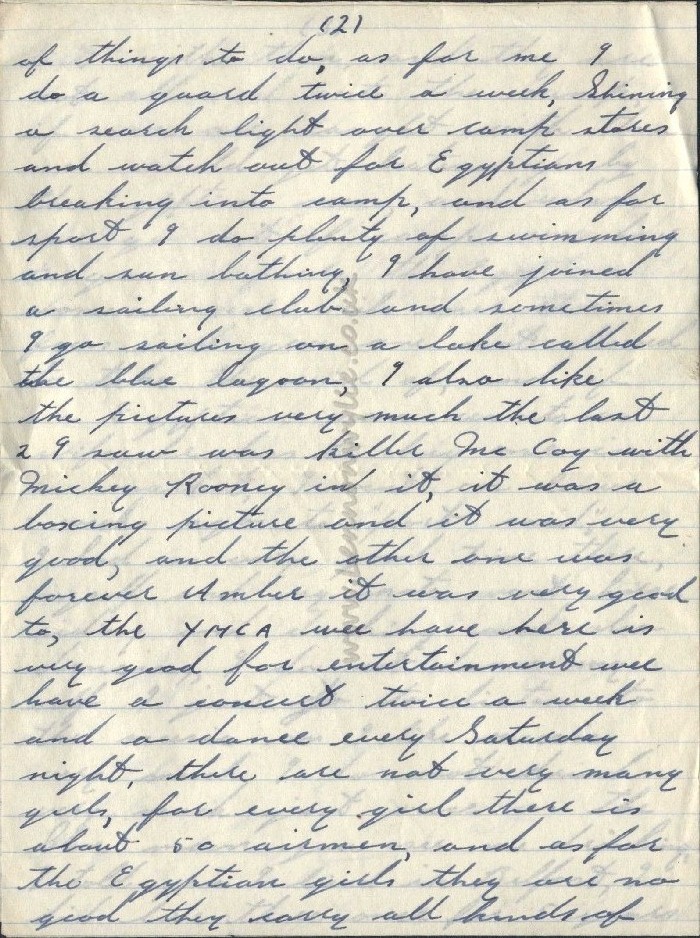 (2)
of things to do, as for me I
do a guard twice a week, Shining
a search light over camp stores
and watch out for Egyptians
breaking into camp, and as for
sport I do plenty of swimming
and sun bathing, I have joined
a sailing club and sometimes
I go sailing on a lake called
the blue lagoon, I also like
the pictures very much the last
2 I saw was killer Mc Coy with
Mickey Rooney in it, it was a
boxing picture and it was very
good, and the other one was,
forever Amber it was very good
to, the YMCA wee have here is
very good for entertainment wee
have a concert twice a week
and a dance every Saturday
night, there are not very many
girls, for every girl there is
about 50 airmen, and as for
the Egyptian girls they are no
good they carry all kinds of